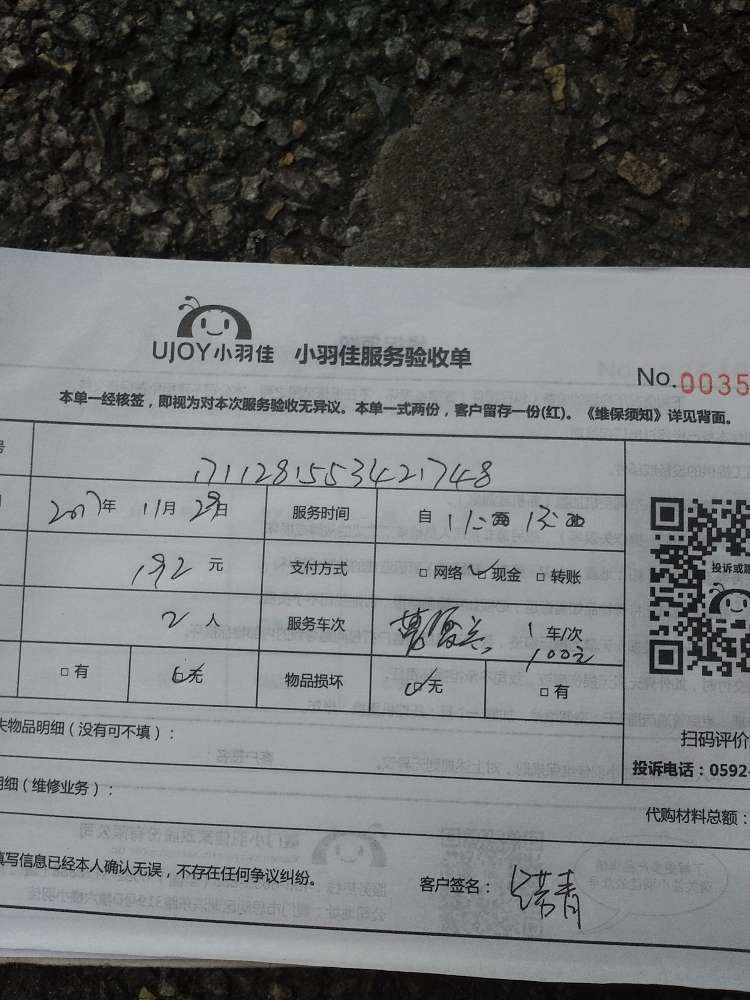 UJOY小羽佳 小羽佳服务验收单
No.0035
本单一经核签，即视为对本次服务验收无异议。本单一式两份，客户留存一份(红)。《维保须知》详见背面。
号 1711281553421748
2017年 11月 29日 服务时间 自
192 元 支付方式 □ 网络 ☑ 现金 □ 转账
2 人 服务车次 1 车/次
100元
□ 有 无 物品损坏 无 □ 有
投诉或建
失物品明细（没有可不填）：
扫码评价
投诉电话：0592-
明细（维修业务）：
代购材料总额：
填写信息已经本人确认无误，不存在任何争议纠纷。
客户签名：